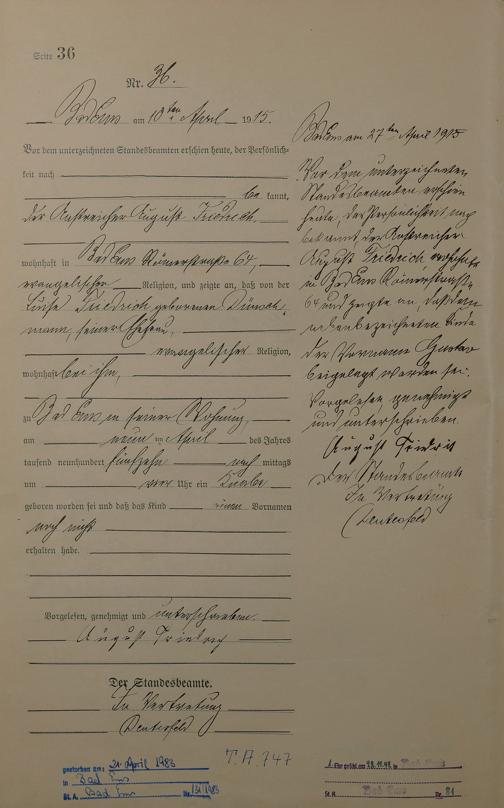 Seite 36
Nr. 36.
Bad Ems am 10ten April 1915.
Vor dem unterzeichneten Standesbeamten erschien heute, der Persönlich-
keit nach
be kannt,
der Anstreicher August Friedrich,
wohnhaft in Bad Ems Römerstraße 64,
evangelischer Religion, und zeigte an, daß von der
Luise Friedrich geborenen
mann, seiner Ehefrau,
evangelischer Religion,
wohnhaft bei ihm,
zu Bad Ems in seiner Wohnung,
am neun ten April des Jahres
tausend neunhundert fünfzehn nach mittags
um vier Uhr ein Knabe
geboren worden sei und daß das Kind einen Vornamen
noch nicht
erhalten habe.
Vorgelesen, genehmigt und unterschrieben.
August Friedrich
Der Standesbeamte.
In Vertretung
gestorben am: 21. April 1983
in Bad Ems
St. A. Bad Ems Nr. 131/1983
T.A. 747
Bad Ems am 27ten April 1915
Vor dem unterzeichneten
Standesbeamten erschien
heute, der Persönlichkeit nach
bekannt, der Anstreicher
August Friedrich wohnhaft
in Bad Ems Römerstraße
64 und zeigte an, daß dem
nebenbezeichneten Kinde
der Vorname Gustav
beigelegt worden sei.
Vorgelesen, genehmigt
und unterschrieben
August Friedrich
Der Standesbeamte
In Vertretung
1. Ehe geschl. am in Bad Ems
St. A. Bad Ems Nr. 81